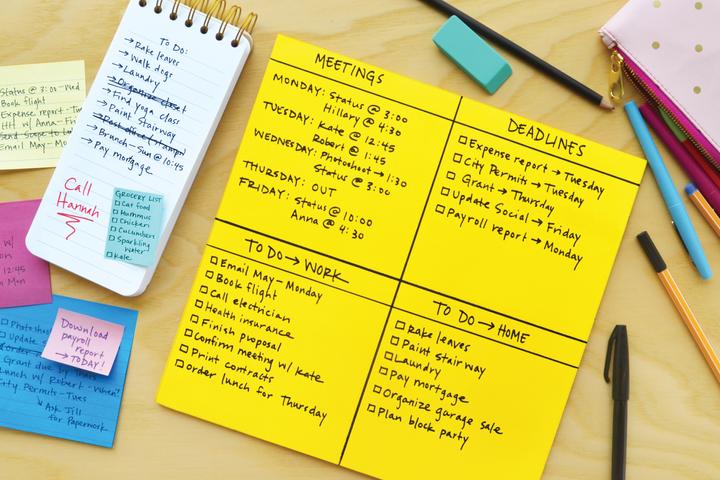 Status @ 3:00 Wed
Book flight
Expense report - Tue
HH w/ Anna - Fri
Send Scope to
Email May - Mo
To Do:
→ Rake leaves
→ Walk dogs
→ Laundry
→ Organize closet
→ Find yoga class
→ Paint Stairway
→ Post office (stamps)
→ Branch - Sun @ 10:45
→ Pay mortgage
Call
Hannah
GROCERY LIST
□ Cat food
□ Hummus
□ Chicken
□ Cucumbers
□ Sparkling
water
□ Kale
w/
12:45
Mon
Download
payroll
report
→ TODAY!
□ Photosh
□ Update
Grant due by
Lunch w/ Robert - When?
City Permits - Tues
↳ Ask Jill
for Paperwork
MEETINGS
MONDAY: Status @ 3:00
Hillary @ 4:30
TUESDAY: Kate @ 12:45
Robert @ 1:45
WEDNESDAY: Photoshoot → 1:30
Status @ 3:00
THURSDAY: OUT
FRIDAY: Status @ 10:00
Anna @ 4:30
DEADLINES
□ Expense report → Tuesday
□ City Permits → Tuesday
□ Grant → Thursday
□ Update Social → Friday
□ Payroll report → Monday
TO DO → WORK
□ Email May - Monday
□ Book flight
□ Call electrician
□ Health insurance
□ Finish proposal
□ Confirm meeting w/ Kate
□ Print contracts
□ Order lunch for Thursday
TO DO → HOME
□ Rake leaves
□ Paint stairway
□ Laundry
□ Pay mortgage
□ Organize garage sale
□ Plan block party